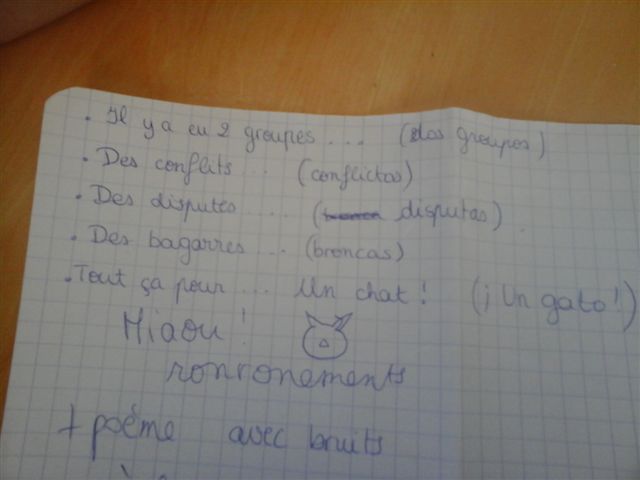 . Il y a eu 2 groupes ... (dos groupes)
. Des conflits ... (conflictos)
. Des disputes .... ( disputas)
. Des bagarres ... (broncas)
. Tout ça pour ... Un chat ! (¡ Un gato !)
Miaou !
ronronements
+ poéme avec bruits